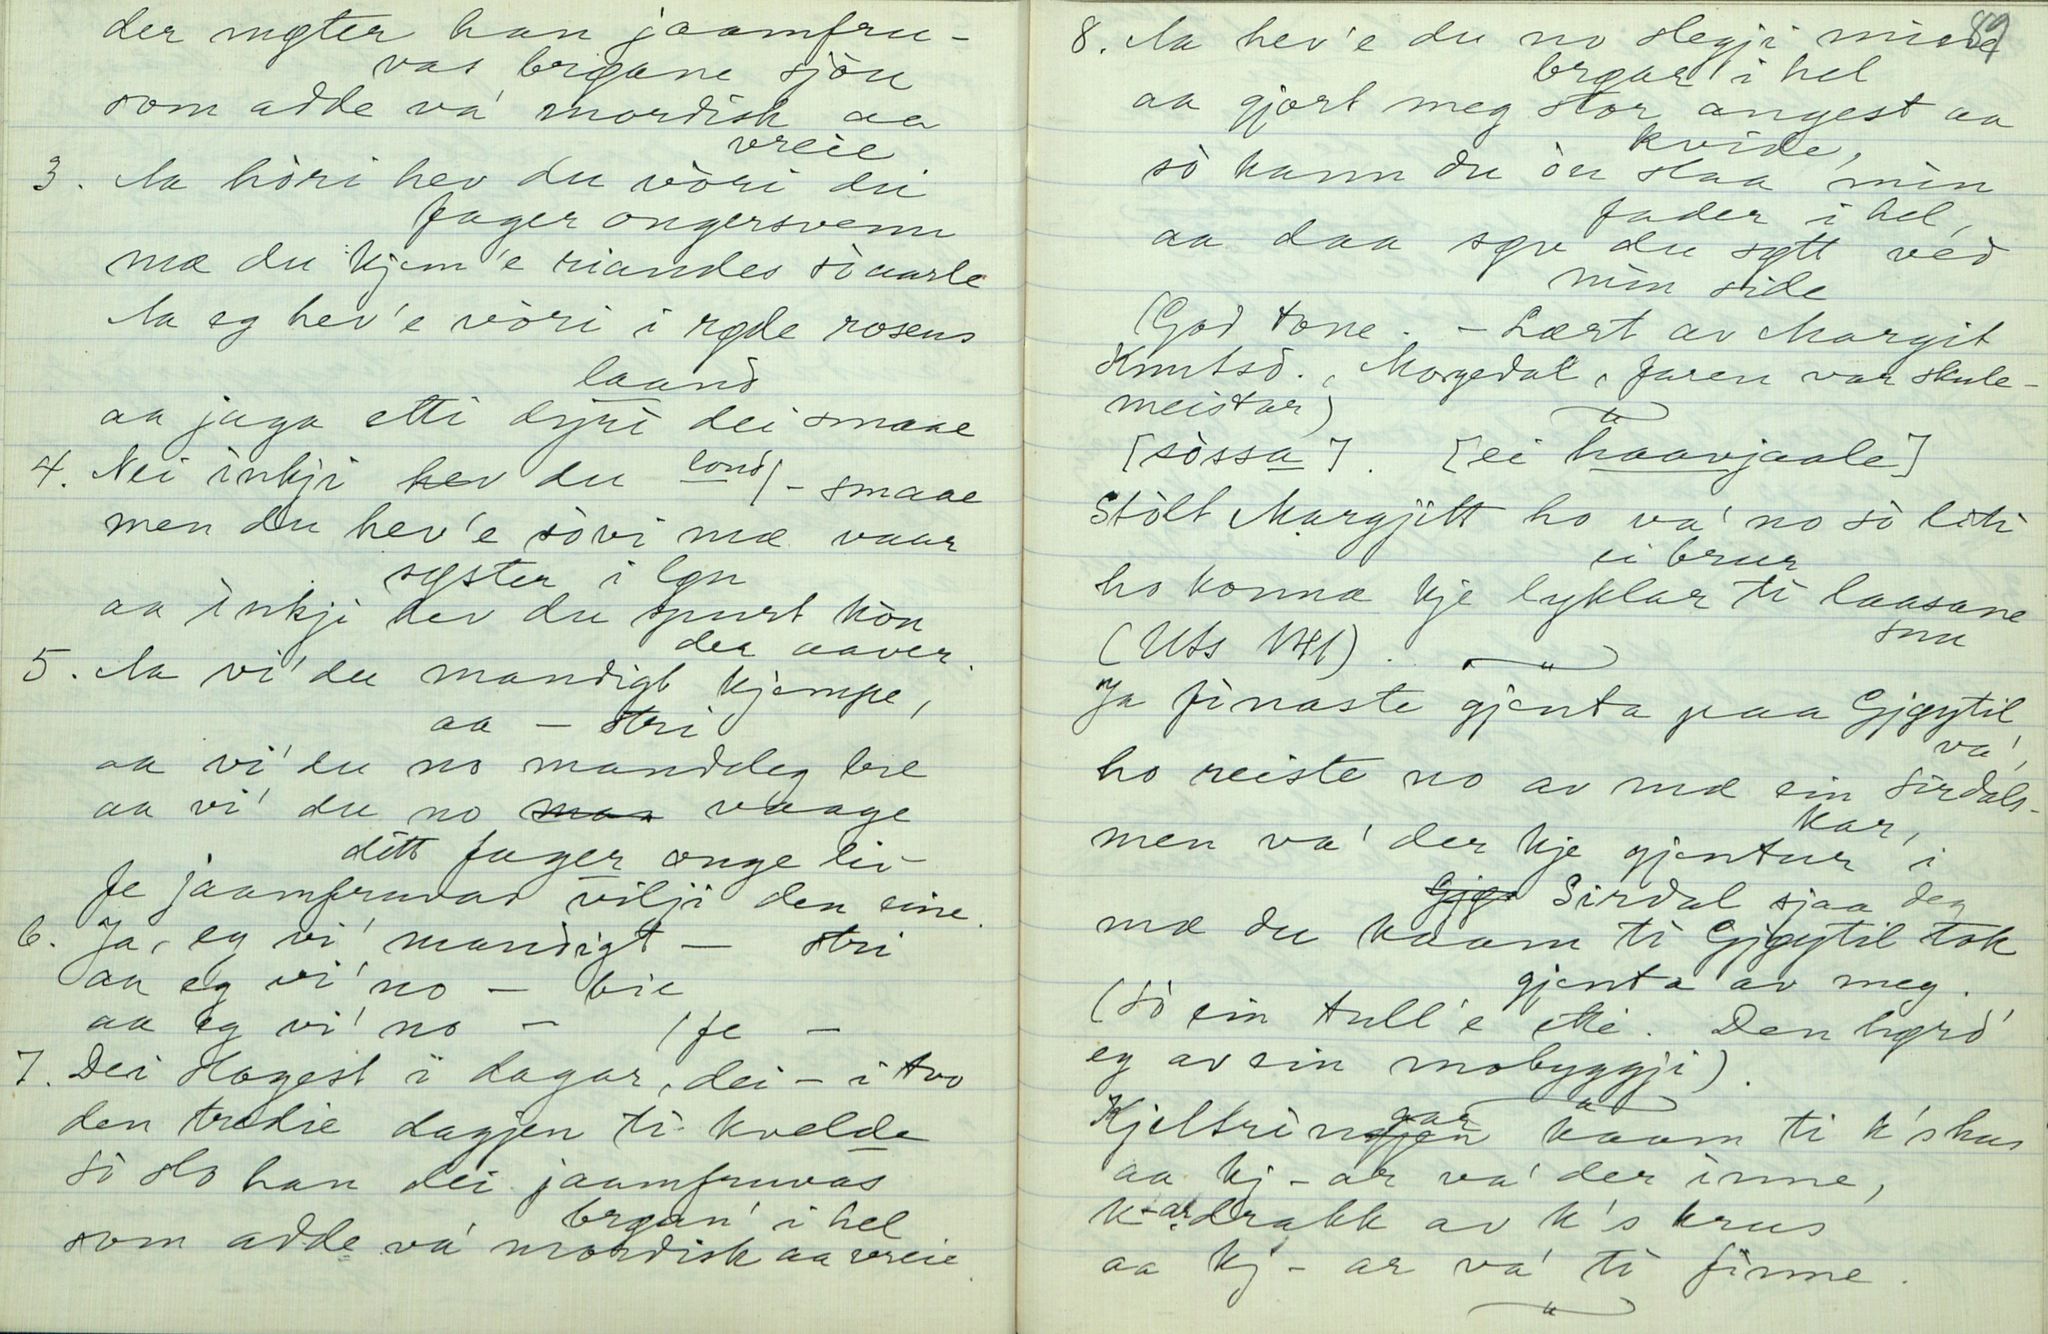 der møter han jaamfru-
vas brøane sjöu
som adde va' mordisk aa
vreie
3. Aa hòri hev du vòri du
fager ongersvenn
mæ du kjem'e riandes sò aarle
Aa eg hev'e vòri i røde rosens
laand
aa jaga etti dýri dei smaae
4. Nei inkji hev du lond/- smaae
men du hev'e sòvi mæ vaar
søster i løn
aa inkji hev du spurt kòn
dea aaver.
5. Aa vi' du mandigt kjempe,
aa – stri
aa vi' du no manddeg bie
aa vi' du no vaage
ditt fager onge liv
fe jaamfruvas vilji den eine.
6. Ja, eg vi' mandigt – stri
aa eg vi' no – bie
aa eg vi' no – / fe –
7. Dei slogest i dagar, dei – i tvo
den tredie dagjen ti kvelde
sò slo han dei jaamfruvas
brøan' i hel
som adde va' mordisk aa vreie
89
8. Aa hev'e du no slegji mine
brøar i hel
aa gjort meg stor angest aa
kvide,
sò kann du òu slaa min
fader i hel,
aa daa søv du søtt ved
min side
(God tone. – Lært av Margit
Knutsd., Morgedal, faren var skule-
meistar)
[sòssa]. [ei haavjaale]
Stòlt Margjitt ho va' no sò liti
ei brur
ho konnæ kje lyklar ti laasane
snu
(Uts VH).
Ja finaste gjenta paa Gjøytil
va',
ho reiste no av mæ ein Sirdals-
kar,
men va' der kje gjentur i
Gjø Sirdal sjaa deg
mæ du kaam ti Gjøytil tok
gjenta av meg.
(Sò ein tull'e etti. Den høyrd'
eg av ein mobyggji).
Kjeltringar kaam ti k's hus
aa kj-ar va' der inne,
k-ar drakk av k's krus
aa kj-ar va' ti finne.